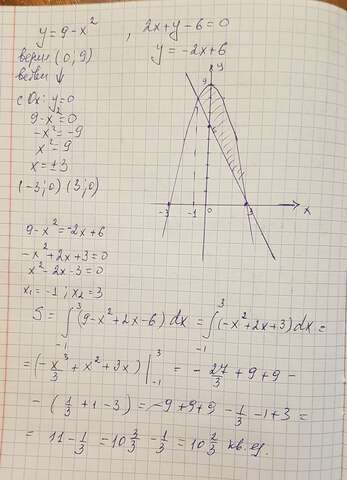 y = 9 - x² , 2x + y - 6 = 0
верш (0; 9) y = -2x + 6
ветви ↓
с Ox: y = 0
9 - x² = 0
-x² = -9
x² = 9
x = ±3
(-3; 0) (3; 0)
y
9
-3 -1 0 3 x
9 - x² = -2x + 6
-x² + 2x + 3 = 0
x² - 2x - 3 = 0
x₁ = -1 ; x₂ = 3
S = ∫₋₁³ (9 - x² + 2x - 6) dx = ∫₋₁³ (-x² + 2x + 3) dx =
= (-x³/3 + x² + 3x) |₋₁³ = -27/3 + 9 + 9 -
- (1/3 + 1 - 3) = -9 + 9 + 9 - 1/3 - 1 + 3 =
= 11 - 1/3 = 10 3/3 - 1/3 = 10 2/3 кв. ед.